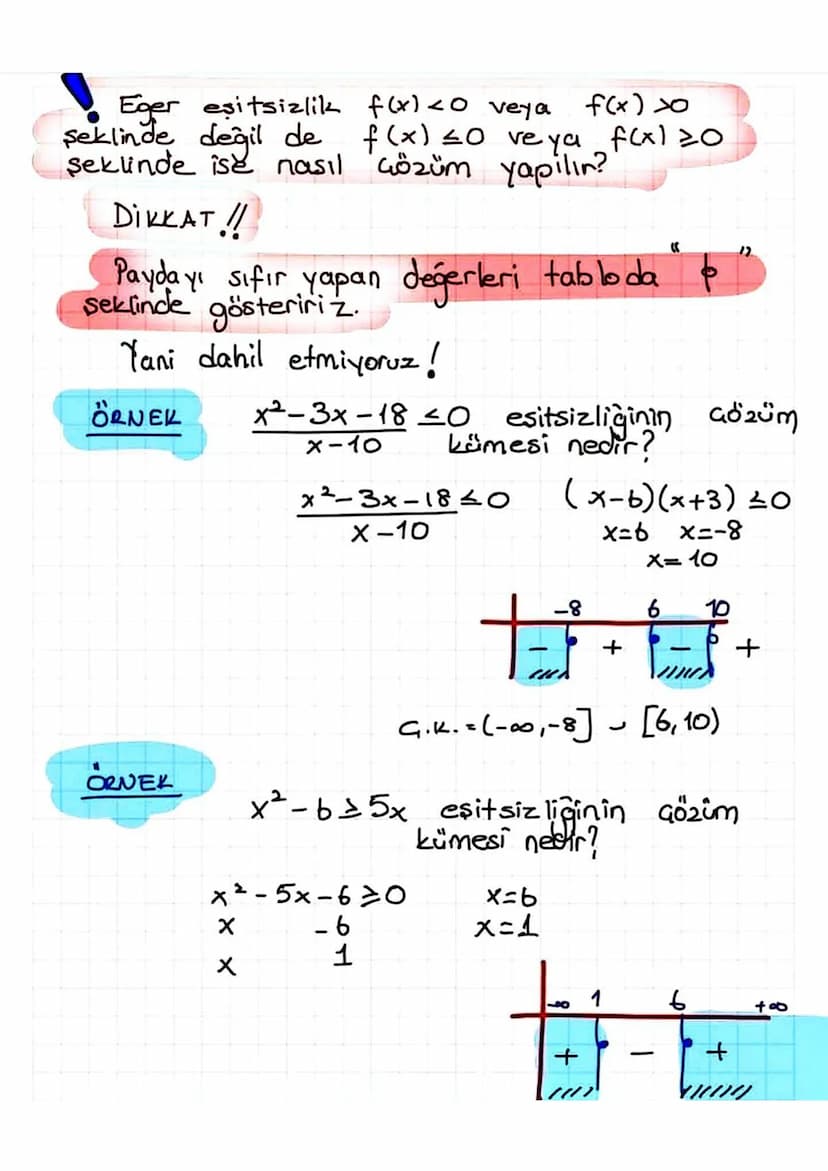 Eğer eşitsizlik f(x) <0 veya f(x) >0
şeklinde değil de f(x) ≤0 veya f(x) ≥0
şeklinde ise nasıl çözüm yapılır?
DİKKAT!!
Paydayı sıfır yapan değerleri tabloda “ ϕ ”
şeklinde gösteririz.
Yani dahil etmiyoruz!
ÖRNEK
x²-3x-18 ≤0 eşitsizliğinin çözüm
x-10 kümesi nedir?
x²-3x-18≤0 (x-6)(x+3) ≤0
x-10 x=6 x=-8
x=10
-8 6 10
- + - +
Ç.K.=(-∞,-8] ∪ [6,10)
ÖRNEK
x²-6≥5x eşitsizliğinin çözüm
kümesi nedir?
x²-5x-6≥0 x=6
x -6 x=1
x 1
-∞ 1 6 +∞
+ - +